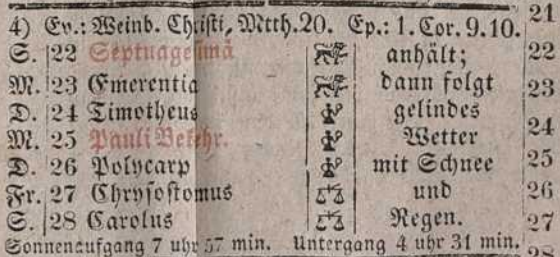 4) Ev.: Weinb. Christi, Mtth.20. Ep.: 1. Cor. 9.10. 21
S. 22 Septuagesimä anhält; 22
M. 23 Emerentia dann folgt 23
D. 24 Timotheus gelindes 24
M. 25 Pauli Bekehr. Wetter
D. 26 Polycarp mit Schnee 25
Fr. 27 Chrysostomus und 26
S. 28 Carolus Regen. 27
Sonnenaufgang 7 uhr 57 min. Untergang 4 uhr 31 min. 28